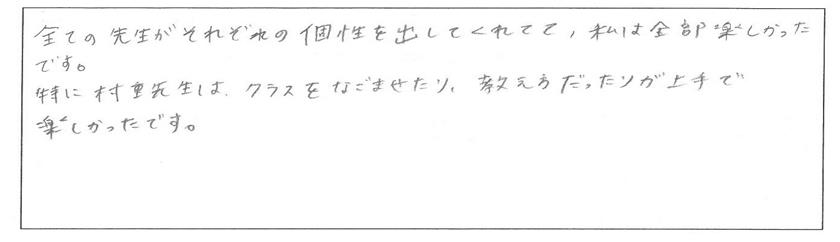 全ての先生がそれぞれの個性を出してくれてて、私は全部楽しかった
です。
特に村重先生は、クラスをなごませたり、教え方だったりが上手で
楽しかったです。